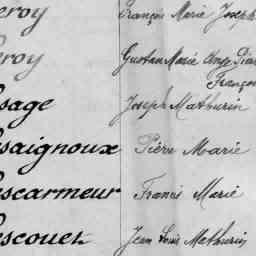 eroy François Marie Joseph
eroy Gustave Marie Ange Pier
François
esage Joseph Mathurin
esaignoux Pierre Marie
escarmeur Francis Marie
escouet Jean Louis Mathurin